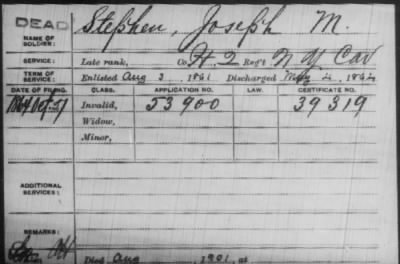 DEAD
Stephen, Joseph M.
NAME OF SOLDIER:
SERVICE: Late rank, Co. H, 2 Reg't N Y Cav
TERM OF SERVICE: Enlisted Aug 3, 1861. Discharged 1864
DATE OF FILING. CLASS. APPLICATION NO. LAW. CERTIFICATE NO.
1864 Oct. Invalid, 53900 39319
Widow,
Minor,
ADDITIONAL SERVICES:
REMARKS:
Died Aug , 1901, at